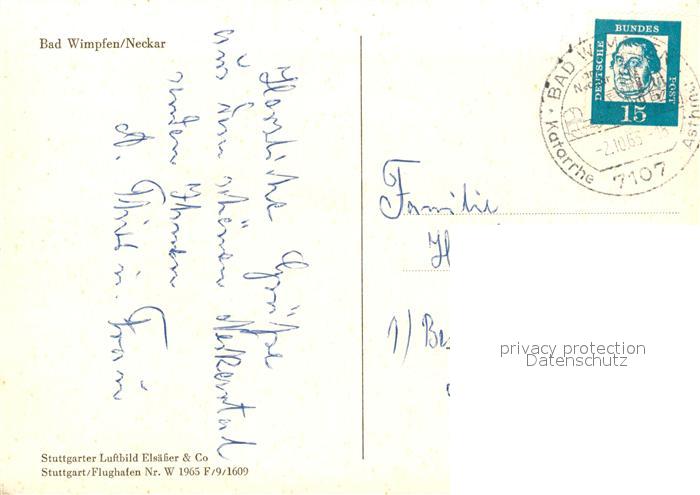 Bad Wimpfen/Neckar
Herzliche Grüße
aus dem schönen Neckartal
senden Ihnen
A. u. Frau
Stuttgarter Luftbild Elsäßer & Co
Stuttgart/Flughafen Nr. W 1965 F/9/1609
DEUTSCHE BUNDES POST
15
BAD
-2.10.63
Katarrhe
7107
Familie
H
1) Be
privacy protection
Datenschutz